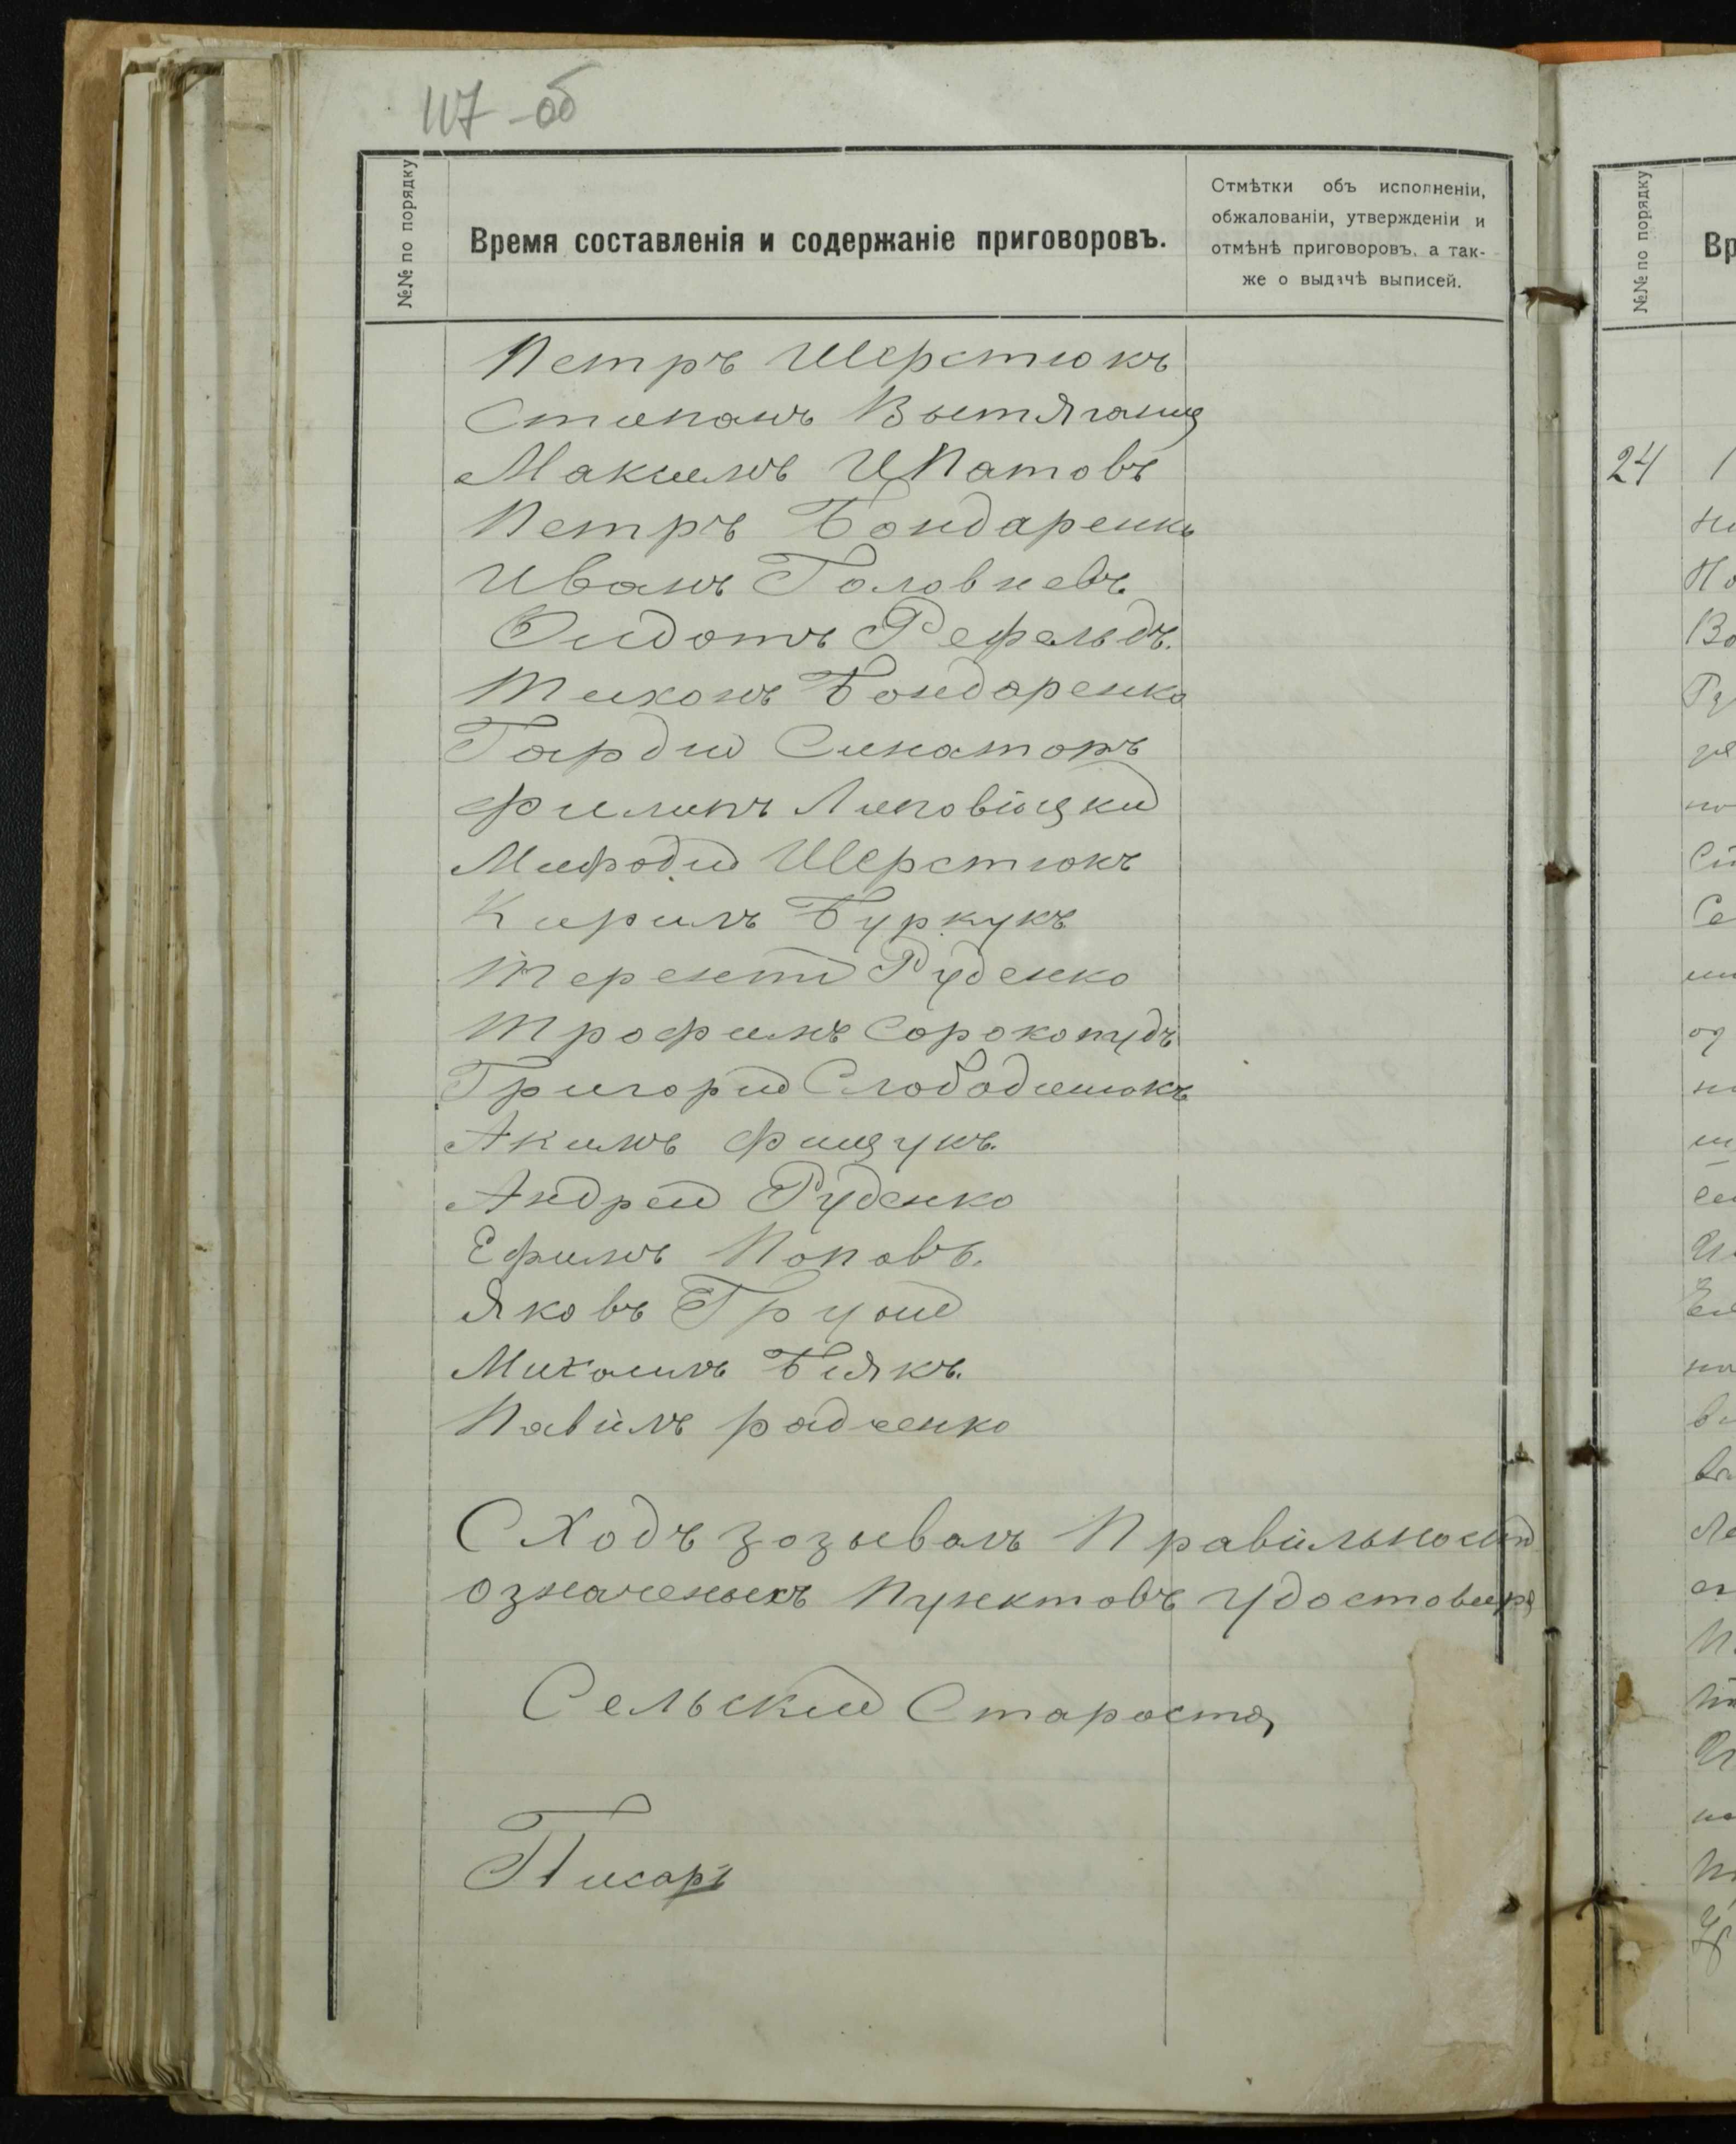 117-об
№№ по порядку
Время составленія и содержаніе приговоровъ.
Отмѣтки объ исполненіи,
обжалованіи, утвержденіи и
отмѣнѣ приговоровъ, а так-
же о выдачѣ выписей.
Петръ Шерстюкъ
Степанъ
Максимъ Ипатовъ
Петръ Бондаренко
Иванъ Головневъ
Федотъ Рефельдъ.
Тихонъ Бондаренко
Гордий Синаторъ
Филипъ Липовіцкий
Мифодий Шерстюкъ
Кирилъ Буркукъ
Терентій Руденко
Трофимъ Сорокопудъ
Григорий Слободенюкъ
Акимъ Фищукъ.
Андрей Руденко
Ефимъ Поповъ.
Яковъ
Михаилъ Биякъ.
Павілъ радченко
СХодъ зозывалъ Правільность
означеныхъ Пунктовъ Удостовиря
Сельский Староста
Писарь
№№ по порядку
Вр
24